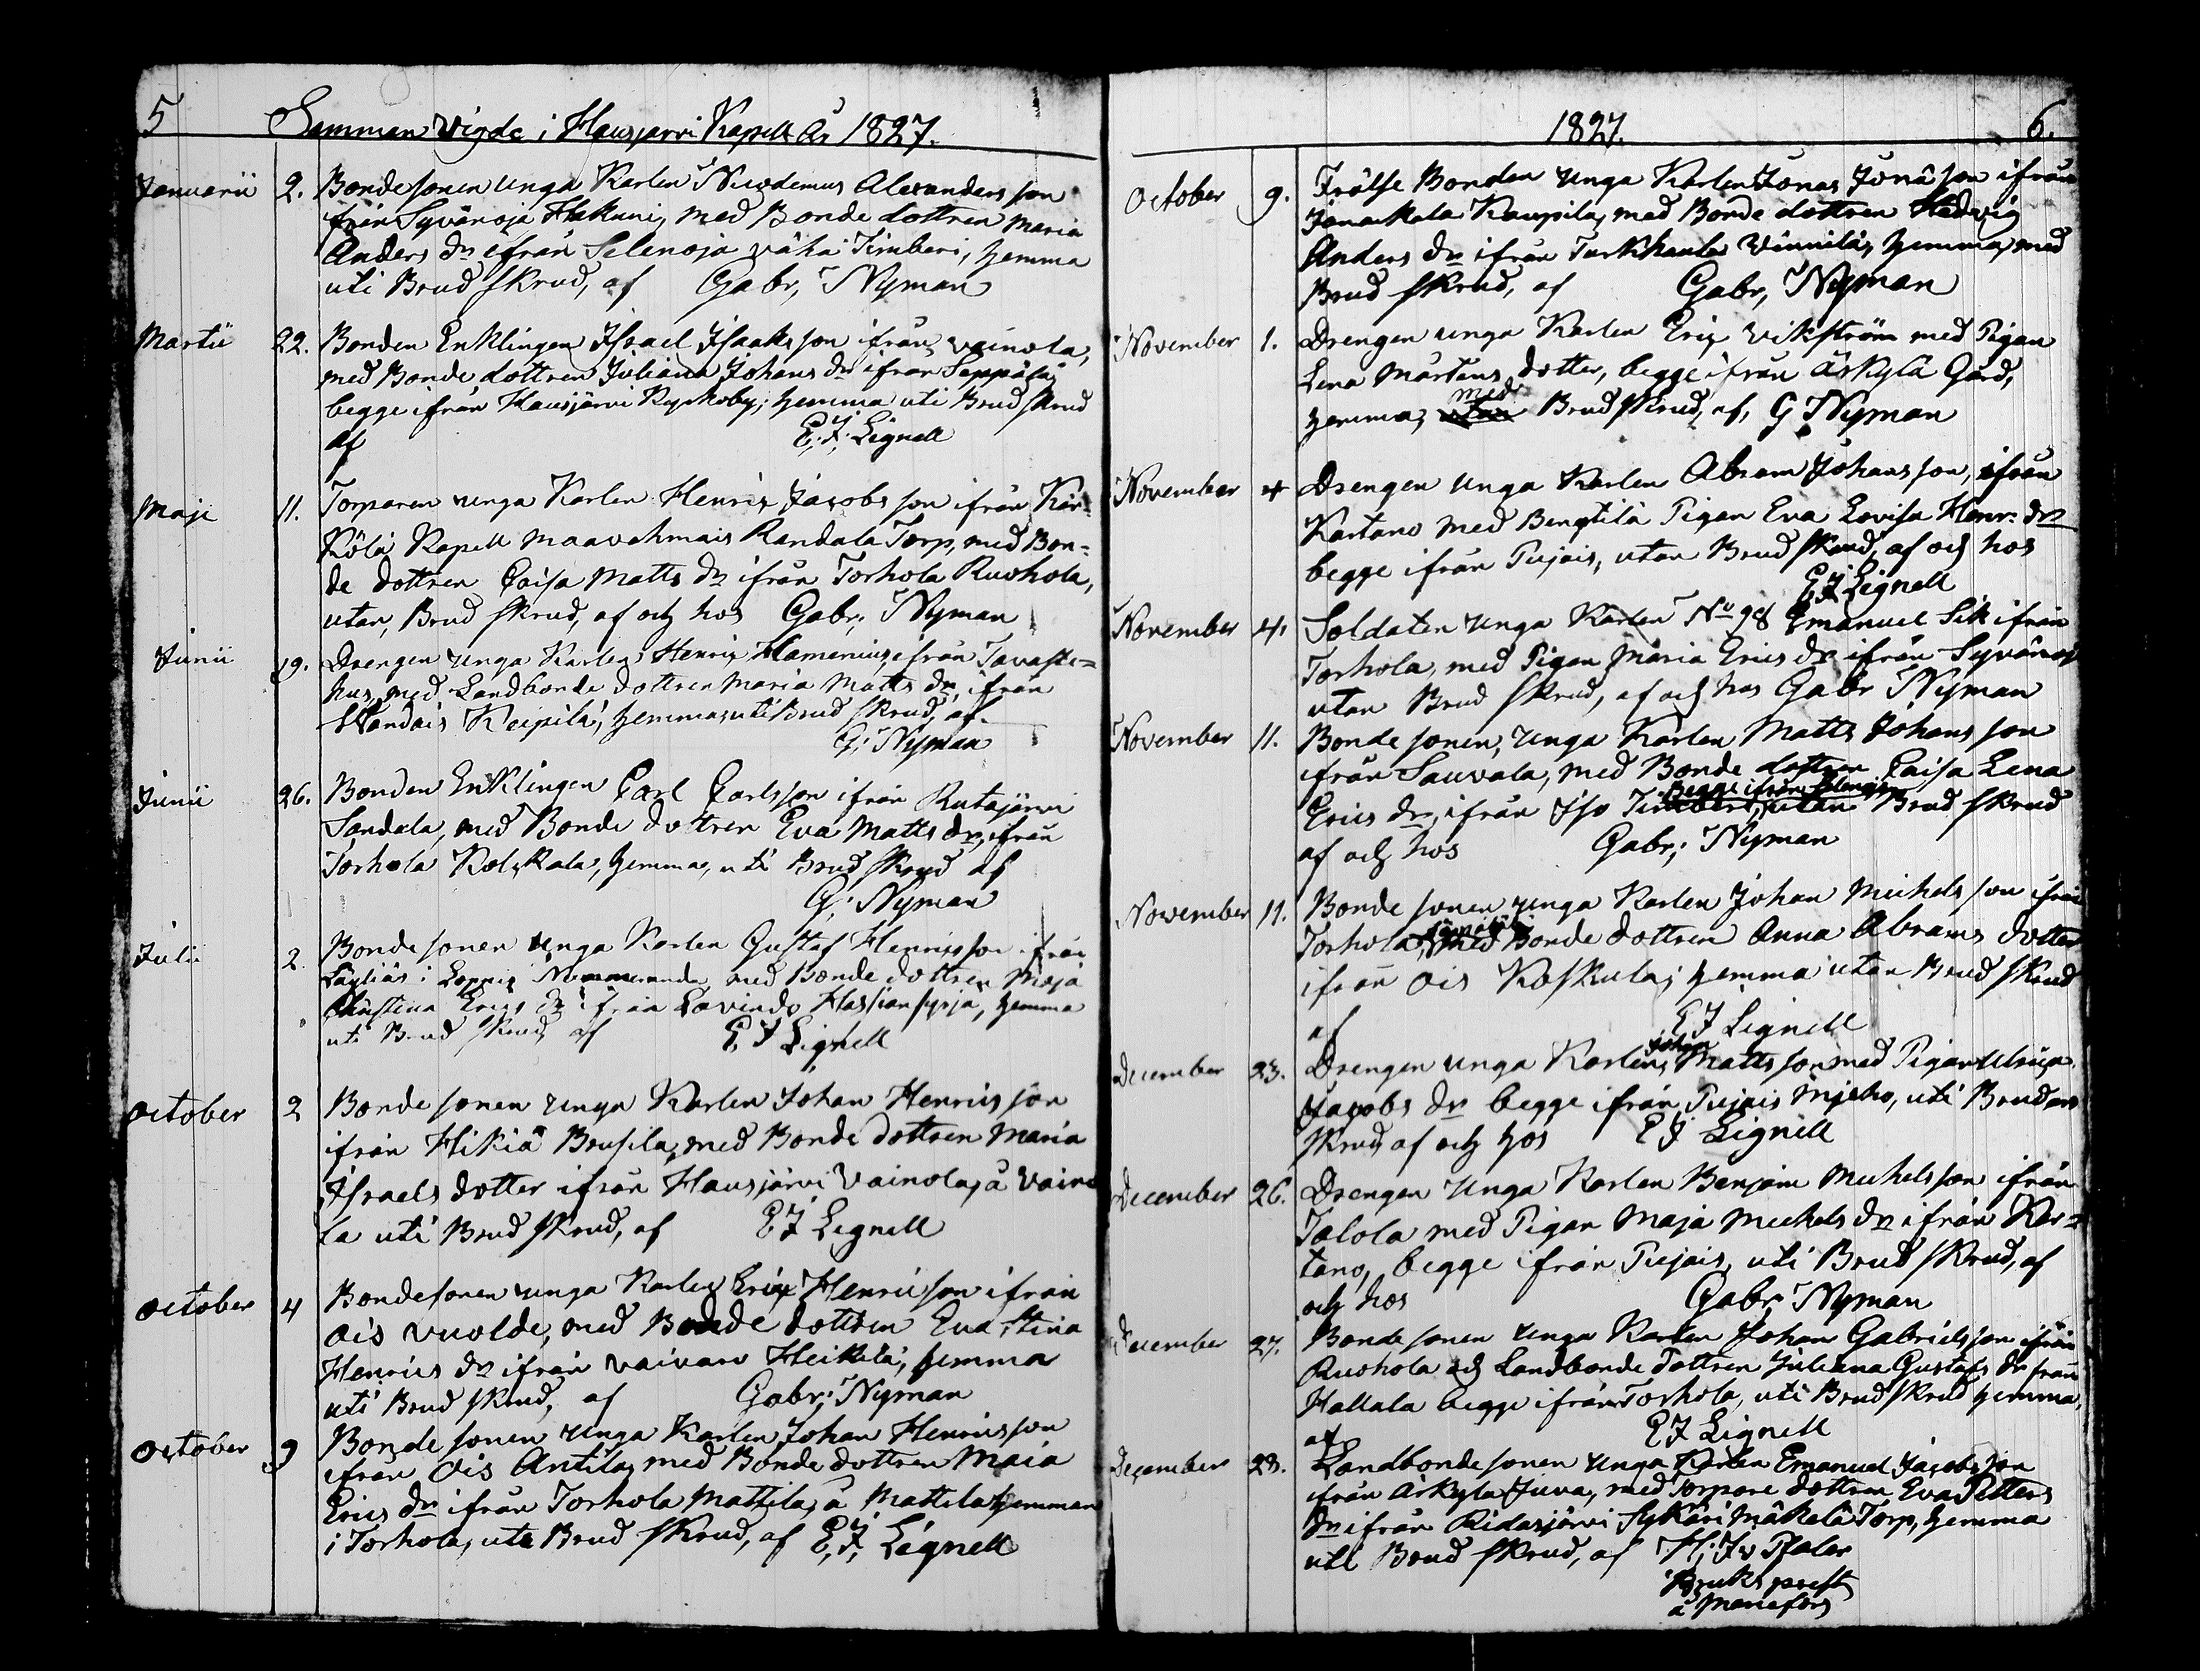 5 Samman Vigde i Hausjärvi Kapell År 1827.
Januarii 2. Bondesonen unga Karlen Nicodemus Alexanders son
från Syvänoja Hakuni, med Bonde dottren Maria
Anders dr ifrån Selenoja vähä Timberi, hemma
uti Brud skrud, af Gabr, Nyman
Martii 22. Bonden Enklingen Israel Isaaksson ifrån vainola,
med Bonde dottren Juliana Johans dr ifrån Seppälä
begge ifrån Hausjärvi Kyrkoby; hemma uti Brud skrud
af E; J; Lignell
Maji 11. Torparen unga Karlen Henric Jacobs son ifrån Kär
Kölä Kapell Maavehmais Randala Torp, med Bon-
de dottren Caisa Matts dr ifrån Torhola Ruohola,
utan, Brud skrud, af och hos Gabr; Nyman
Junii 19. Drengen unga Karlen Henric Flamenius ifrån Tavaste-
hus, med Landbonde dottren Maria Matts dr, ifrån
Keipilä, hemma, uti Brud skrud, af
G; Nyman
Junii 26. Bonden Enklingen Carl Carlsson ifrån Rutajärvi
Sandala, med Bonde dottren Eva Matts dr, ifrån
Torhola Kolskala, hemma, uti Brud skrud af
G; Nyman
Julii 2. Bonde sonen unga Karlen Gustaf Henricsson ifrån
Läyliäs i Loppis med Bonde dottren Maja
Christina Erics dr ifrån hemma
uti Brud skrud, af E, J Lignell
October 2 Bonde sonen unga Karlen Johan Henrics son
ifrån Hikiä Brusila, med Bonde dottren Maria
Israels dotter ifrån Hausjärvi Vainola, å Vaino
la uti Brud skrud, af E J Lignell
October 4 Bondesonen unga Karlen Eric Henricson ifrån
Ois vuolde, med Bonde dottren Eva Stina
Henrics dr ifrån vaivaro Heikilä, hemma
uti Brud skrud, af Gabr; Nyman
October 9 Bonde sonen unga Karlen Johan Henricsson
ifrån Ois Antila, med Bonde dottren Maia
Erics dr ifrån Torhola Mattila, å Mattila hemman
i Torhola, uti Brud skrud, af E, J, Lignell
1827. 6.
October 9. Frälse Bonden unga Karlen Jonas Jonä son ifrån
Janackala Kaupila, med Bonde dottren Hedvig
Anders dr ifrån Turkhauta Vinnilä, hemma, med
Brud skrud, af Gabr, Nyman
November 1. Drengen unga Karlen Eric Vikström med Pigan
Lena Mårtens dotter, begge ifrån Äskylä Gård,
med
hemma, utan Brud skrud, af, G Nyman
November 4 Drengen unga Karlen Abram Johans son, ifrån
Kartano med Bengtilä Pigan Eva Lovisa Henr: dr
begge ifrån Pujais, utan Brud skrud, af och hos
E J Lignell
November 4. Soldaten unga Karlen No 98 Emanuel Sik ifrån
Torhola, med Pigan Maria Erics dr ifrån Syvänoj
utan Brud skrud, af och hos Gabr Nyman
November 11. Bonde sonen, unga Karlen Matts Johans son
ifrån Sauvala, med Bonde dottren Caisa Lena
Begge ifrån Selenoja
Erics dr, ifrån Iso Timberi, utan Brud skrud
af och hos Gabr; Nyman
November 11. Bonde sonen unga Karlen Johan Michels son ifrån
Torhola, med Bonde dottren Anna Abrams dotter
ifrån Ois Koskula, hemma, utan Brud skrud
af E J Lignell
Johan
December 23. Drengen unga Karlen, Matts son med Pigan Ulrica
Jacobs dr begge ifrån Pujais uti Brudens
skrud af och hos E J Lignell
December 26. Drengen unga Karlen Benjam Michels son ifrån
Talola med Pigan Maja Michels dr ifrån Kar-
tano, begge ifrån Pujais, uti Brud skrud, af
och hos Gabr, Nyman
December 27. Bonde sonen unga Karlen Johan Gabrielsson ifrån
Ruohola och Landbonde dottren Juliana Gustafs dr från
Hallala begge ifrån Torhola, uti Brud skrud hemma,
af E J Lignell
December 28. Landbonde sonen unga Karlen Emanuel Jacobsson
ifrån Äskylä Juva, med Torpare dottren Eva Petters
dr ifrån Ridasjärvi Sykäri Mäkelä Torp, hemma
uti Brud skrud, af H; J v Pfaler
Bruks prest
å Mariefors